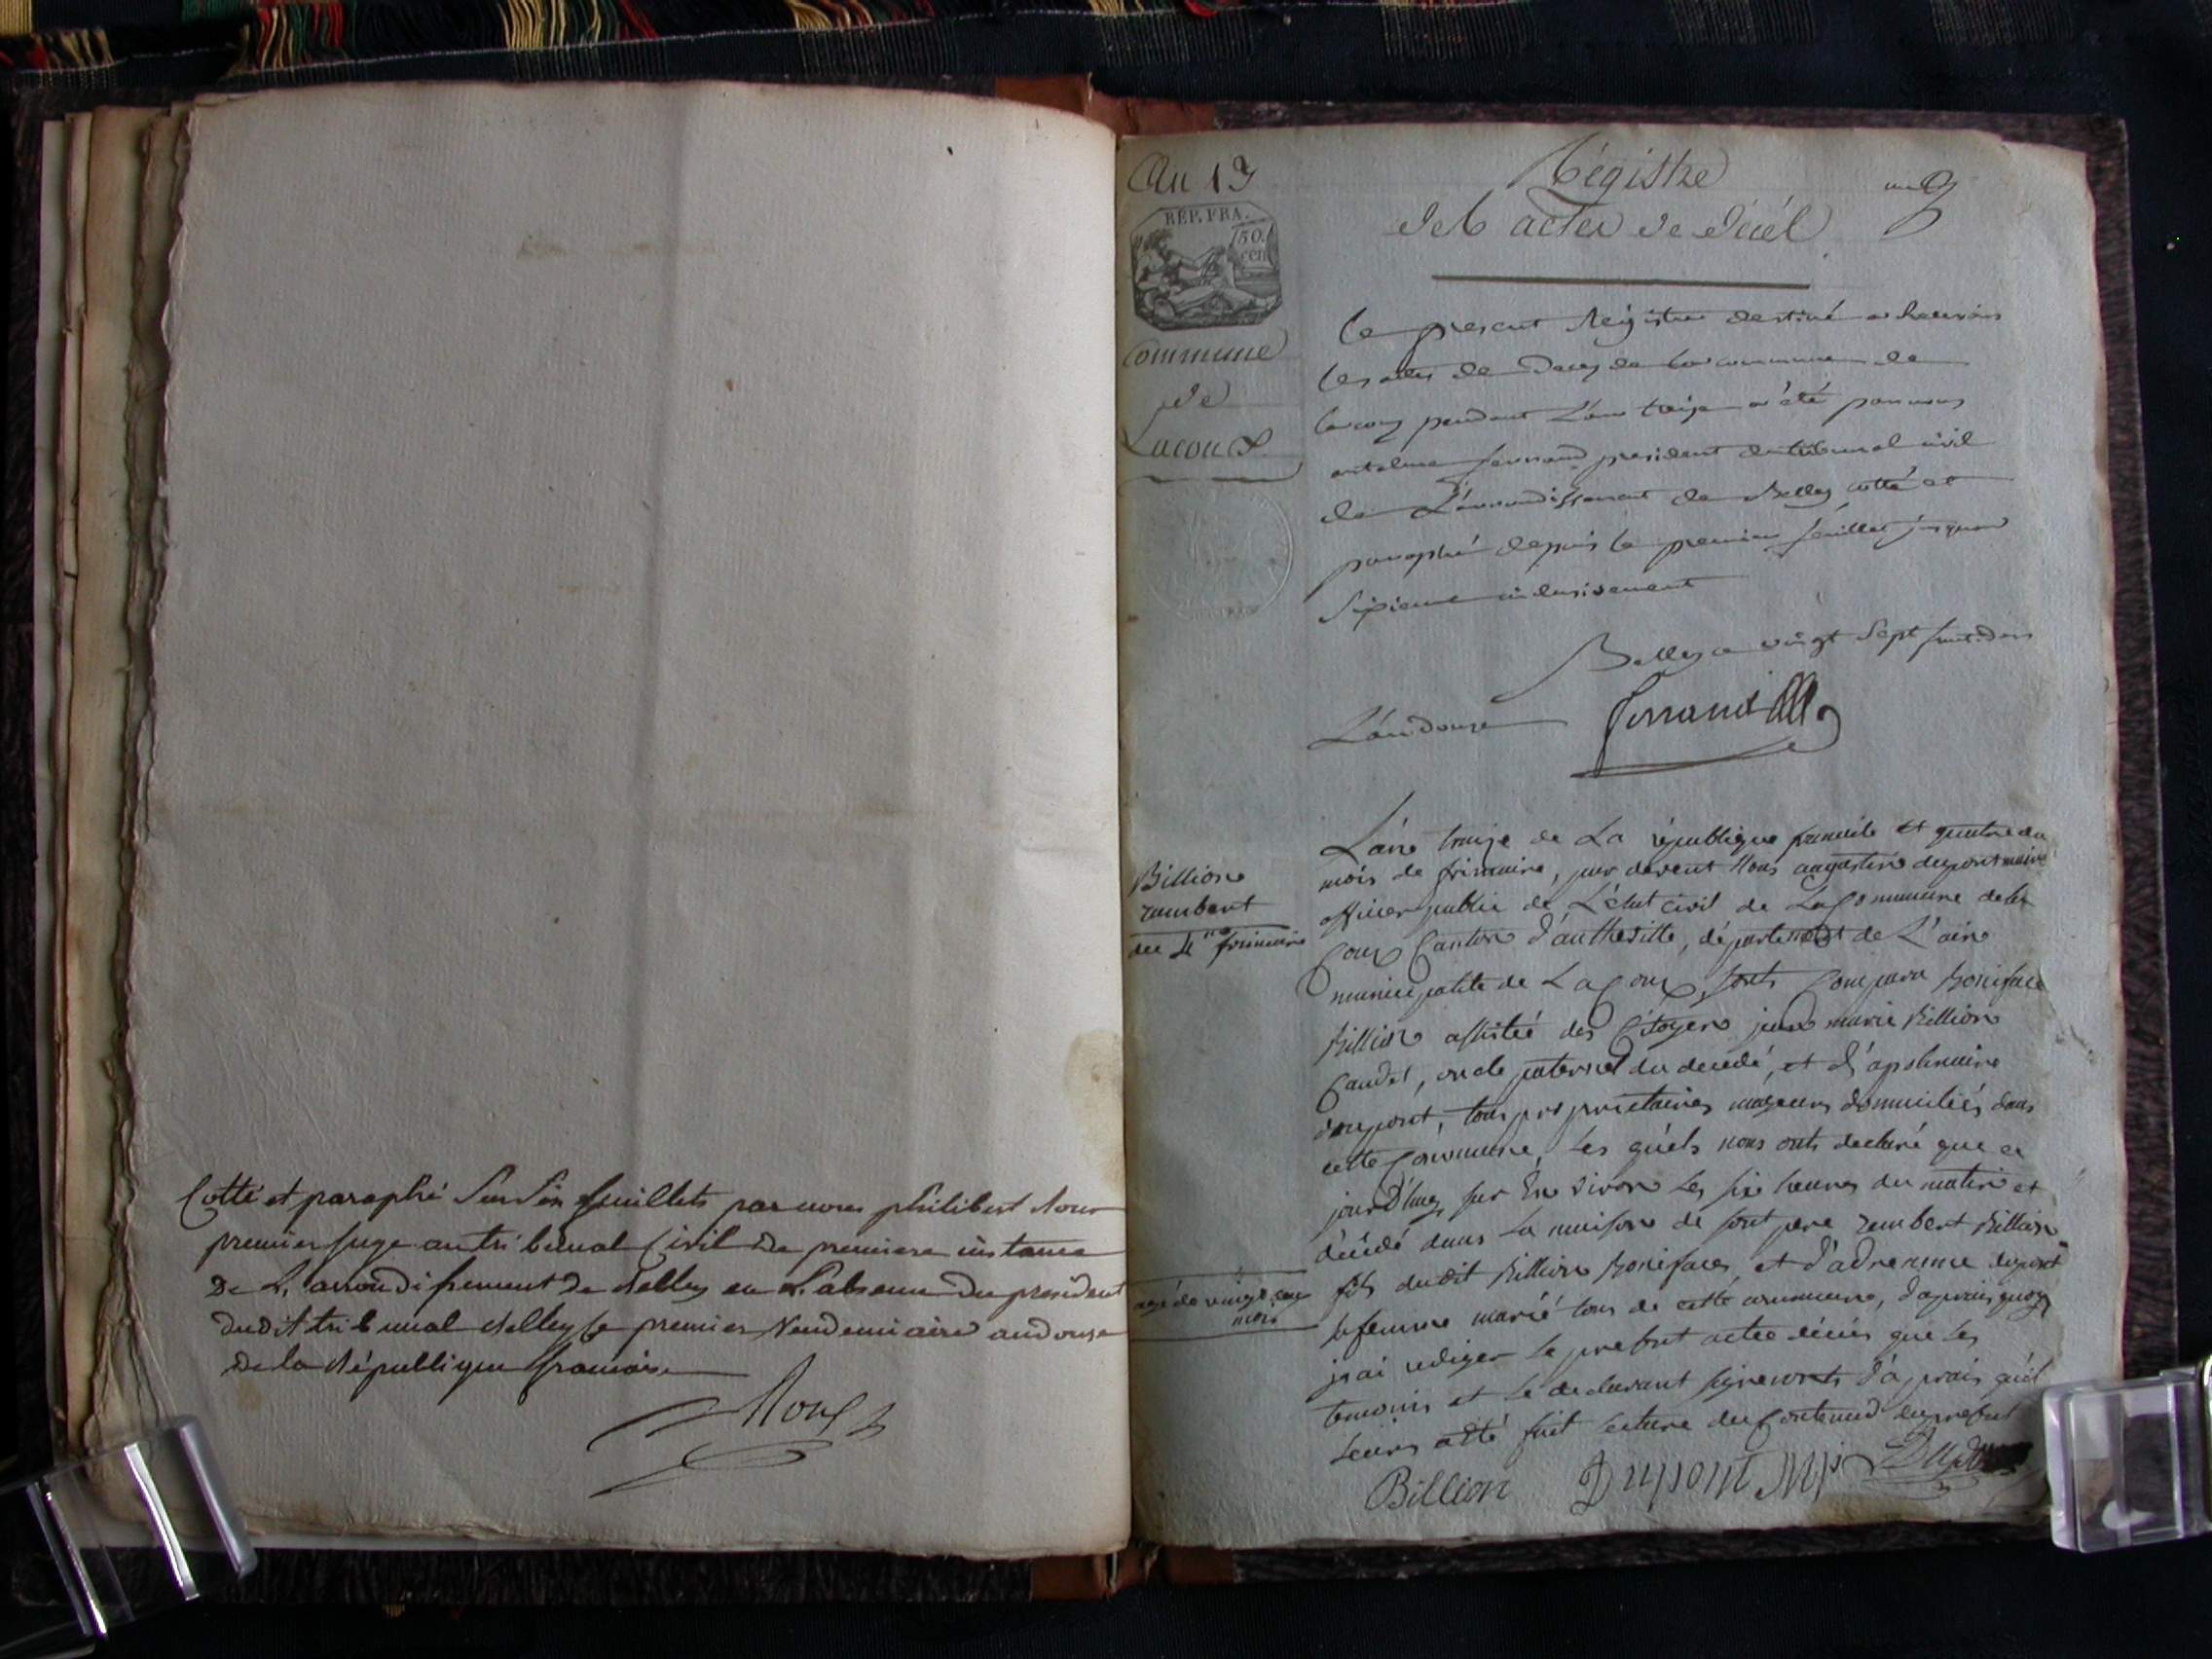 Cotté et paraphé Sur Six feuillets par nous philibert
premier juge au tribunal Civil de premiere instance
De L'arrondissement de Belley en L'absence du president
dudit tribunal Belley le premier Vendemiaire an douze
de la République française
An 13
REP. FRA.
50.
cen
Commune
de
Lacoux
Régistre
des actes de décél
Le present Registre destiné a Recevoir
les actes de Deces de la commune de
Lacoux pendant L'an treize a été par nous
antelme ferrand president du tribunal civil
de L'arrondissement de Belley cotté et
paraphé depuis le premier feuillet jusquau
Sixieme inclusivement
Belley ce vingt Sept fructidor
L'an douze
ferrand
Billion
rambert
du 4me frimaire
L'an treize de La république francaise et quatre du
mois de frimaire, par devent Nous augustin dupont maire
officier public de L'état civil de La Commune de la
Coux Canton d'anthesitte, département de L'ain
municipalité de La Coux, sont Comparu Boniface
Billion assisté des Citoyens jean marie Billion
Caudet, oncle paternel du decedé, et d'apolinaire
dupont, tous proprietaires majeurs domiciliés dans
cette Commune, les quels nous onts declaré que ce
jourd'huy sur Environ les six heures du matin et
décédé dans La maison de sont pere rambert Billion
fils dudit Billion Boniface, et d'adrianne dupont
sa femme marié tous de cette commune, d'aprais quoy
j'ai rediger le present acte que les
temoins et le declarant signeronts d'aprais qu'il
leurs a été fait lecture du Contenud du present
agé de vingt cinq
mois
Billion Dupont